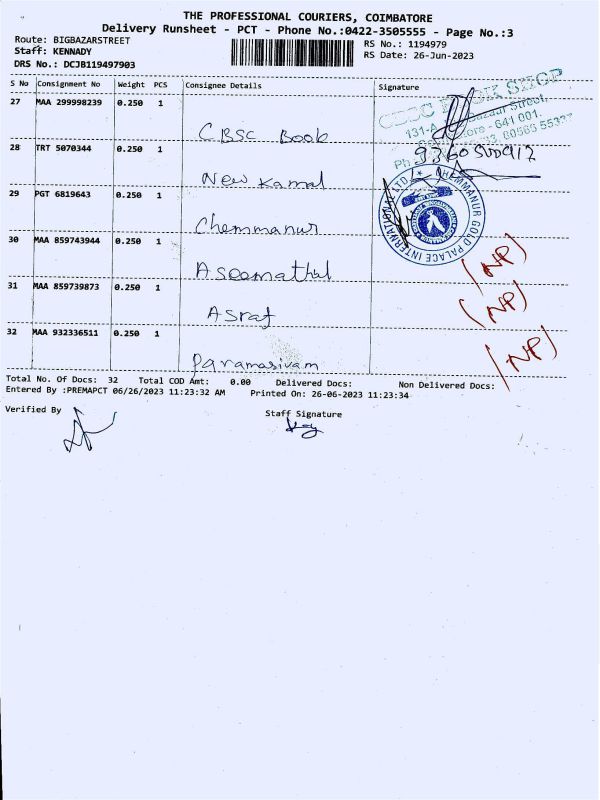 THE PROFESSIONAL COURIERS, COIMBATORE
Delivery Runsheet - PCT - Phone No.:0422-3505555 - Page No.:3
Route: BIGBAZARSTREET
RS No.: 1194979
Staff: KENNADY
RS Date: 26-Jun-2023
DRS No.: DCJB119497903
S No Consignment No Weight PCS Consignee Details Signature
27 MAA 299998239 0.250 1
CBSC Book
CBSC BOOK SHOP
131-A
Street,
641 001.
Ph
28 TRT 5070344 0.250 1
New Kamal
29 PGT 6819643 0.250 1
Chemmanur
CHEMMANUR GOLD PALACE INTERNATIONAL LTD
30 MAA 859743944 0.250 1
Aseemathul
(NP)
31 MAA 859739873 0.250 1
Asraf
(NP)
32 MAA 932336511 0.250 1
Paramasivam
(NP)
Total No. Of Docs: 32 Total COD Amt: 0.00 Delivered Docs: Non Delivered Docs:
Entered By :PREMAPCT 06/26/2023 11:23:32 AM Printed On: 26-06-2023 11:23:34
Verified By
Staff Signature